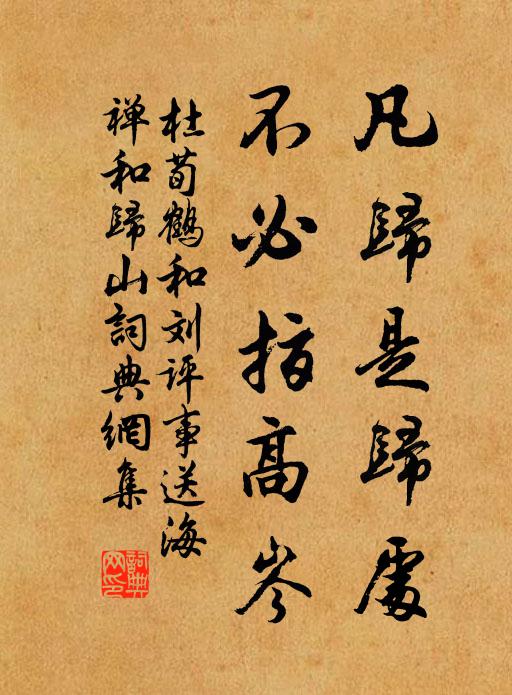 凡歸是歸處
不必指高岑
杜荀鶴和刘评事送海
禅和歸山詞典網集
詞典網印